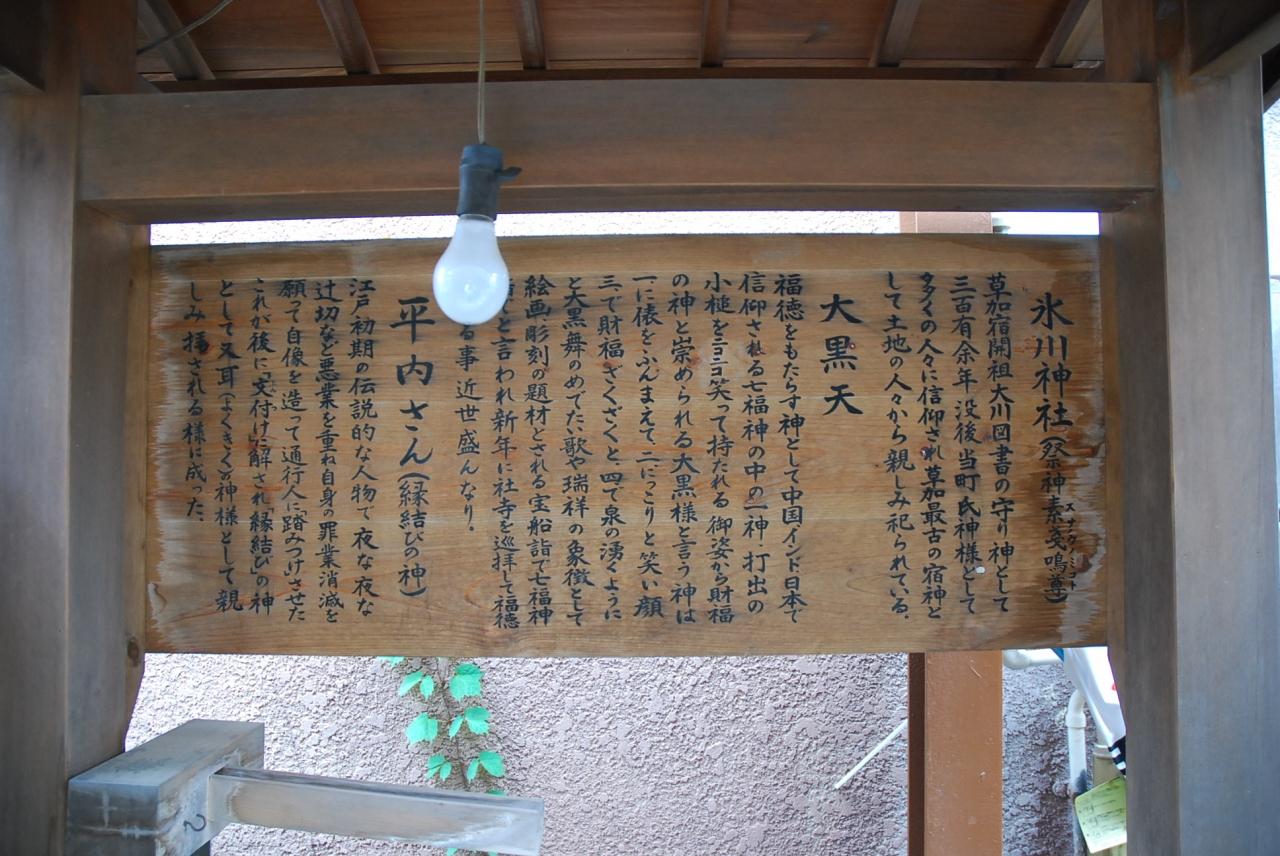 氷川神社(祭神素戔嗚尊)
スサノウノミコト
草加宿開祖大川図書の守り神として
三百有余年没後当町氏神様として
多くの人々に信仰され草加最古の宿神と
して土地の人々から親しみ祀られている。
大黒天
福徳をもたらす神として中国インド日本で
信仰される七福神の中の一神 打出の
小槌をニコニコ笑って持たれる御姿から財福
の神と崇められる大黒様と言う神は
一に俵をふんまえて、二にっこりと笑い顔
三で財福ざくざくと、四で泉の湧くように
と大黒舞のめでた歌や瑞祥の象徴として
絵画彫刻の題材とされる宝船詣で七福神
てと言われ新年に社寺を巡拝して福徳
る事 近世盛んなり。
平内さん(縁結びの神)
江戸初期の伝説的な人物で 夜な夜な
辻切など悪業を重ね自身の罪業消滅を
願って自像を造って通行人に踏みつけさせた
これが後に「文付け」に解され「縁結び」の神
として又耳(よくきく)の神様として親
しみ拝される様に成った。